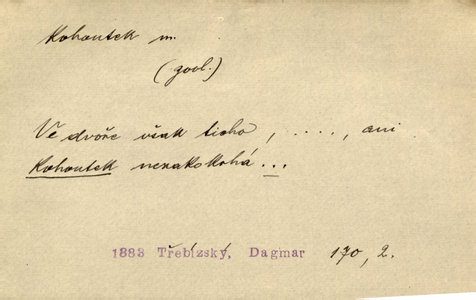 Kohoutek m.
(zool.)
Ve dvoře však ticho, ...., ani
Kohoutek nezakokrhá...
1883 Třebízský, Dagmar 170, 2.